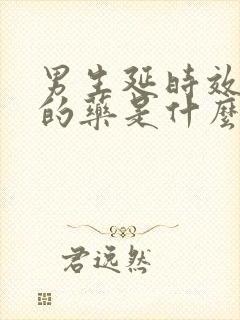 男生延时效
的藥是什麼
君逸然